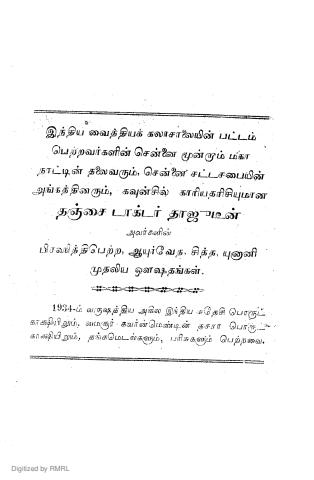 இந்திய வைத்தியக் கலாசாலையின் பட்டம்
பெற்றவர்களின் சென்னை மூன்றும் மகா
நாட்டின் தலைவரும், சென்னை சட்டசபையின்
அங்கத்தினரும், கவுன்சில் காரியதரிசியுமான
தஞ்சை டாக்டர் தாஜுடீன்
அவர்களின்
பிரஸித்திபெற்ற, ஆயுர்வேத, சித்த, யுனானி
முதலிய ஔஷதங்கள்.
1934-ம் வருஷத்திய அகில இந்திய சுதேசி பொருட்
காக்ஷியிலும், மைசூர் கவர்ன்மெண்டின் தசரா பொருட்
காக்ஷியிலும், தங்கமெடல்களும், பரிசுகளும் பெற்றவை.
Digitized by RMRL